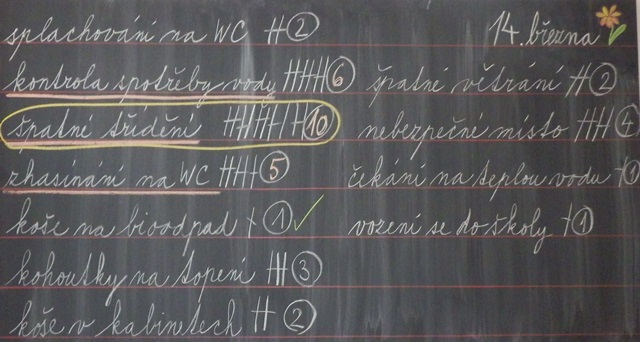 splachování na WC 2
14. března
kontrola spotřeby vody 6
špatné větrání 2
špatné třídění 10
nebezpečné místo 4
zhasínání na WC 5
čekání na teplou vodu 1
koše na bioodpad 1
vození se do školy 1
kohoutky na topení 3
koše v kabinetech 2